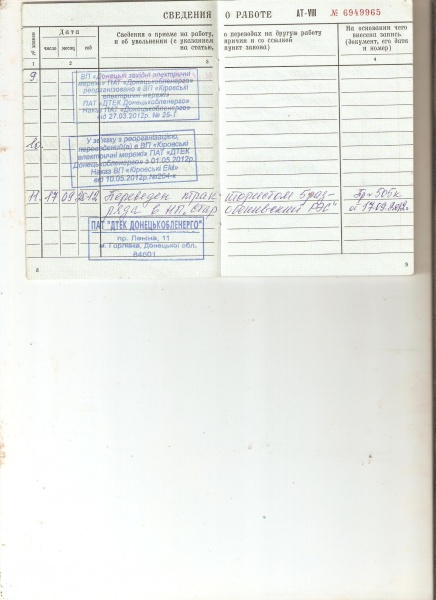 СВЕДЕНИЯ О РАБОТЕ АТ-VIII № 6949965
№ записи
Дата
число месяц год
Сведения о приеме на работу,
и об увольнении (с указанием
на статью,
о переводах на другую работу
причин и со ссылкой
пункт закона)
На основании чего
внесена запись
(документ, его дата
и номер)
1 2 3 4
9.
ВП «Донецькі західні електричні
мережі» ПАТ «Донецькобленерго»
реорганізовано в ВП «Кіровські
електричні мережі»
ПАТ «ДТЕК Донецькобленерго»
Наказ ПАТ «Донецькобленерго»
від 27.03.2012р. №
10.
У зв'язку з реорганізацією,
в ВП «Кіровські
електричні мережі» ПАТ «ДТЕК
Донецькобленерго» з 01.05.2012р.
Наказ ВП «Кіровські ЕМ»
від 10.05.2012р. №204-к
11. 17 09 2012 Переведен
ряда в
РЭС"
Пр-505к
от 17.09.2012г.
ПАТ "ДТЕК ДОНЕЦЬКОБЛЕНЕРГО"
пр. Леніна, 11
м. Горлівка, Донецької обл.
84601
8 9